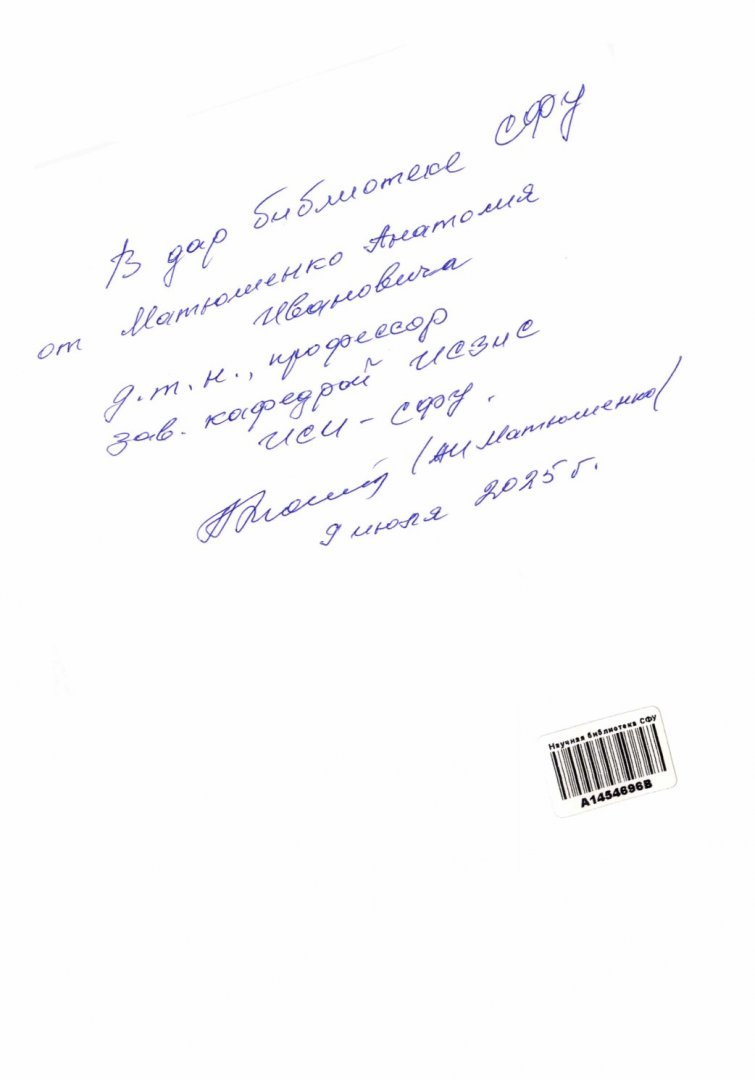 В дар библиотеке СФУ
от Матюшенко Анатолия
Ивановича
д.т.н., профессор
зав. кафедрой ИСЗиС
ИСИ - СФУ.
(АИ Матюшенко)
9 июля 2025 г.
Научная библиотека СФУ
A1454696B